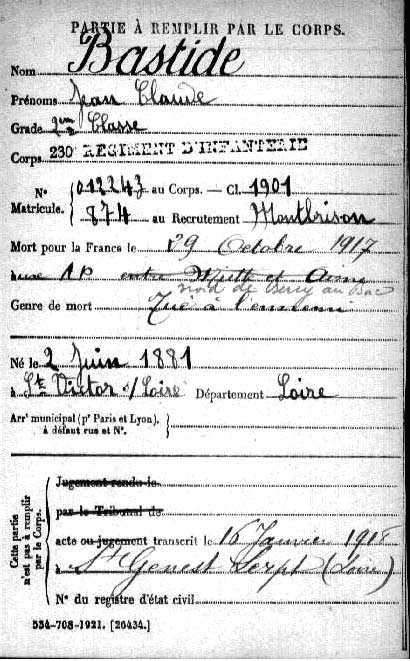 PARTIE À REMPLIR PAR LE CORPS.
Nom Bastide
Prénoms Jean Claude
Grade 2ème Classe
Corps 230 REGIMENT D'INFANTERIE
N° Matricule. { 013243 au Corps. — Cl. 1901
874 au Recrutement Montbrison
Mort pour la France le 29 Octobre 1917
à entre et
nord de Berry au Bac
Genre de mort Tué à l'ennemi
Né le 2 Juin 1881
à St Victor s/ Loire Département Loire
Arrt municipal (pr Paris et Lyon), }
à défaut rue et N°.
Cette partie n'est pas à remplir par le Corps.
Jugement rendu le
par le Tribunal de
acte ou jugement transcrit le 16 Janvier 1918
à St Genest Lerpt (Loire)
N° du registre d'état civil
534-708-1921. [26434.]